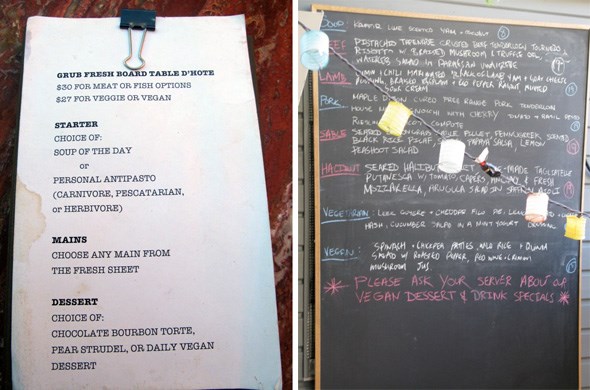 GRUB FRESH BOARD TABLE D'HOTE
$30 FOR MEAT OR FISH OPTIONS
$27 FOR VEGGIE OR VEGAN
STARTER
CHOICE OF:
SOUP OF THE DAY
or
PERSONAL ANTIPASTO
(CARNIVORE, PESCATARIAN,
or HERBIVORE)
MAINS
CHOOSE ANY MAIN FROM
THE FRESH SHEET
DESSERT
CHOICE OF:
CHOCOLATE BOURBON TORTE,
PEAR STRUDEL, OR DAILY VEGAN
DESSERT
SOUP KAFFIR LIME SCENTED YAM + COCONUT
BEEF PISTACHIO TAPENADE CRUSTED BEEF TENDERLOIN
W/ BRAISED MUSHROOM & TRUFFLE OIL,
WATERCRESS SALAD IN PARMESAN VINAIGRETTE
LAMB + CHILI MARINATED RACK OF LAMB YAM + GOAT CHEESE
BRAISED + RED PEPPER RABBIT, MINTED
SOUR CREAM
PORK MAPLE CURED FREE RANGE PORK TENDERLOIN
HOUSE GNOCCHI WITH CHERRY TOMATO + BASIL
COMPOTE
SABLE SEARED FENNELGREEK SCENTED
BLACK RICE PILAF, PAPAYA SALSA, LEMON
PEASHOOT SALAD
HALIBUT SEARED HALIBUT MADE TAGLIATELLE
PUTANESCA W/ TOMATO, CAPERS, & FRESH
MOZZARELLA, ARUGULA SALAD IN SAFFRON AIOLI
VEGETARIAN: LEEK GRUYERE + CHEDDAR FILO PIE, LEMON
HASH, CUCUMBER SALAD IN A MINT YOGURT DRESSING
VEGAN: SPINACH + CHICKPEA PATTIES, WILD RICE + QUINOA
SALAD W/ ROASTED PEPPER, RED WINE +
MUSHROOM JUS
PLEASE ASK YOUR SERVER ABOUT OUR
VEGAN DESSERT & DRINK SPECIALS